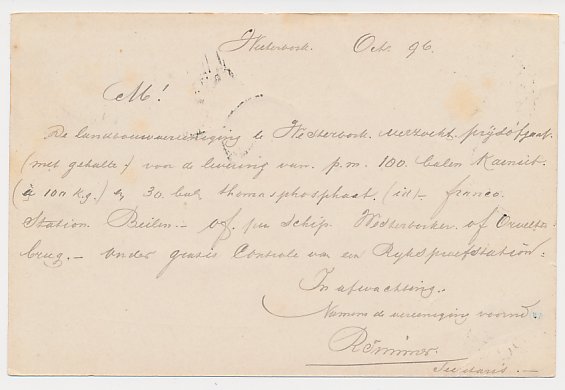 Westerbork. Oct. 96.
M!
De landbouwvereeniging te Westerbork verzoekt prijsopgaaf
(met gehalte) voor de levering van p.m. 100 balen Kaïniet
(à 100 K.g.) en 30 bal thomasphosphaat (id) franco
Station Beilen.- of per schip Westerborker of Orvelter
brug.- onder gratis Controle van een Rijksproefstation.
In afwachting.
Namens de vereeniging voornd.
Secretaris.-